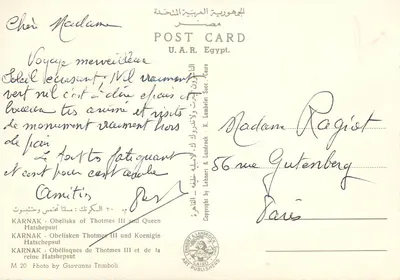 الجمهورية العربية المتحدة
مصر
POST CARD
U. A. R. Egypt.
Chère Madame
Voyage merveilleux
Soleil écrasant. Nil vraiment
vert nil c'est à dire épais et
beaucoup très animé et visites
de monuments vraiment hors
de pair
Le tout très fatiguant
et cent pour cent
Amitiés
Madame Ragist
56 rue Gutenberg
Paris
Copyright by Lehnert & Landrock - K. Lambelet Succ. Cairo
KARNAK - Obelisks of Thotmes III and Queen
Hatshepsut
KARNAK - Obelisken Thotmes III und Koenigin
Hatschepsut
KARNAK - Obélisques de Thotmes III et de la
reine Hatshepsut
M 20 Photo by Giovanni Trimboli